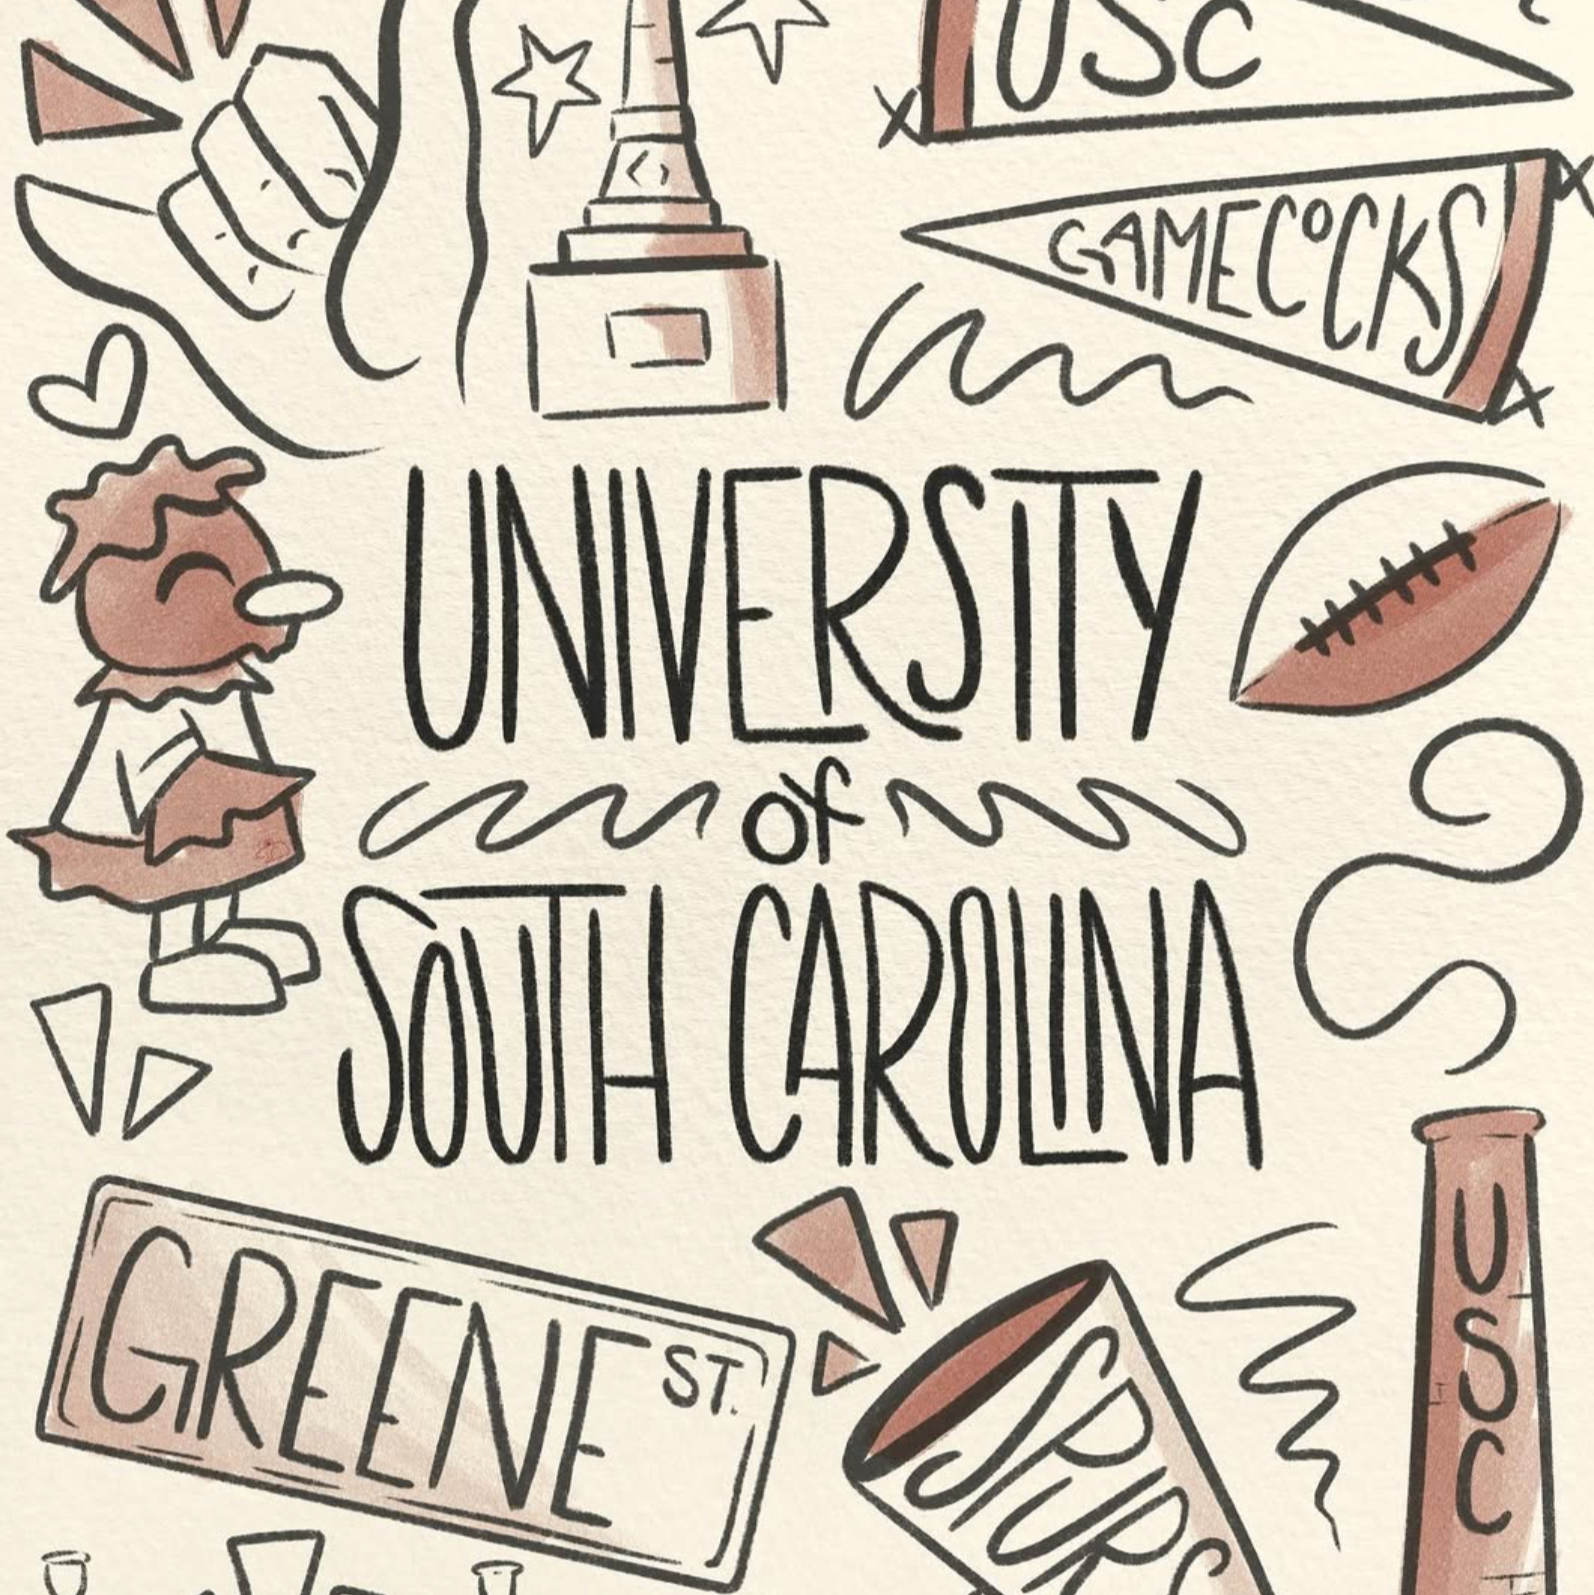 USC
GAMECOCKS
UNIVERSITY
of
SOUTH CAROLINA
GREENE ST.
SPURS
USC